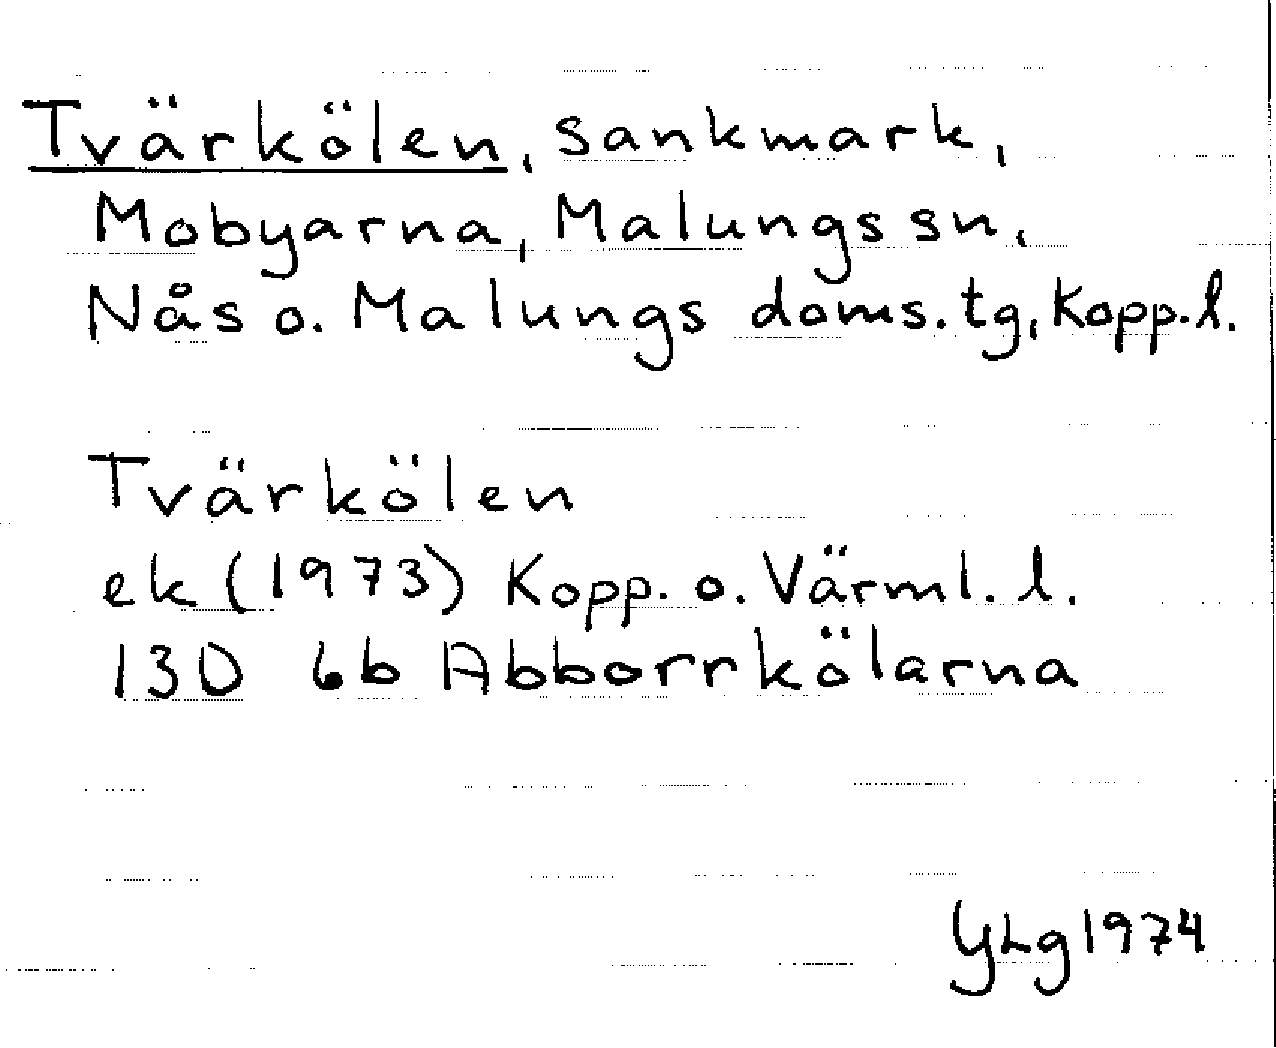 Tvärkölen, sankmark,
Mobyarna, Malungs sn,
Nås o. Malungs doms. tg, Kopp. l.
Tvärkölen
ek (1973) Kopp. o. Värml. l.
13D 6b Abborrkölarna
YLg 1974